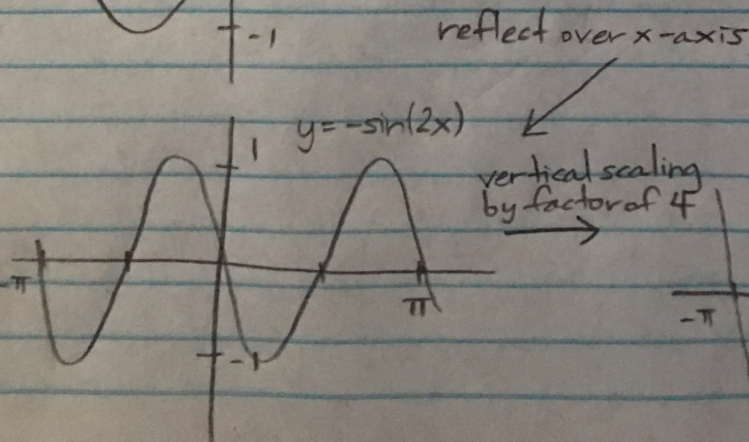 -1
reflect over x-axis
y=-sin(2x)
1
vertical scaling
by factor of 4
-π
π
-π
-1